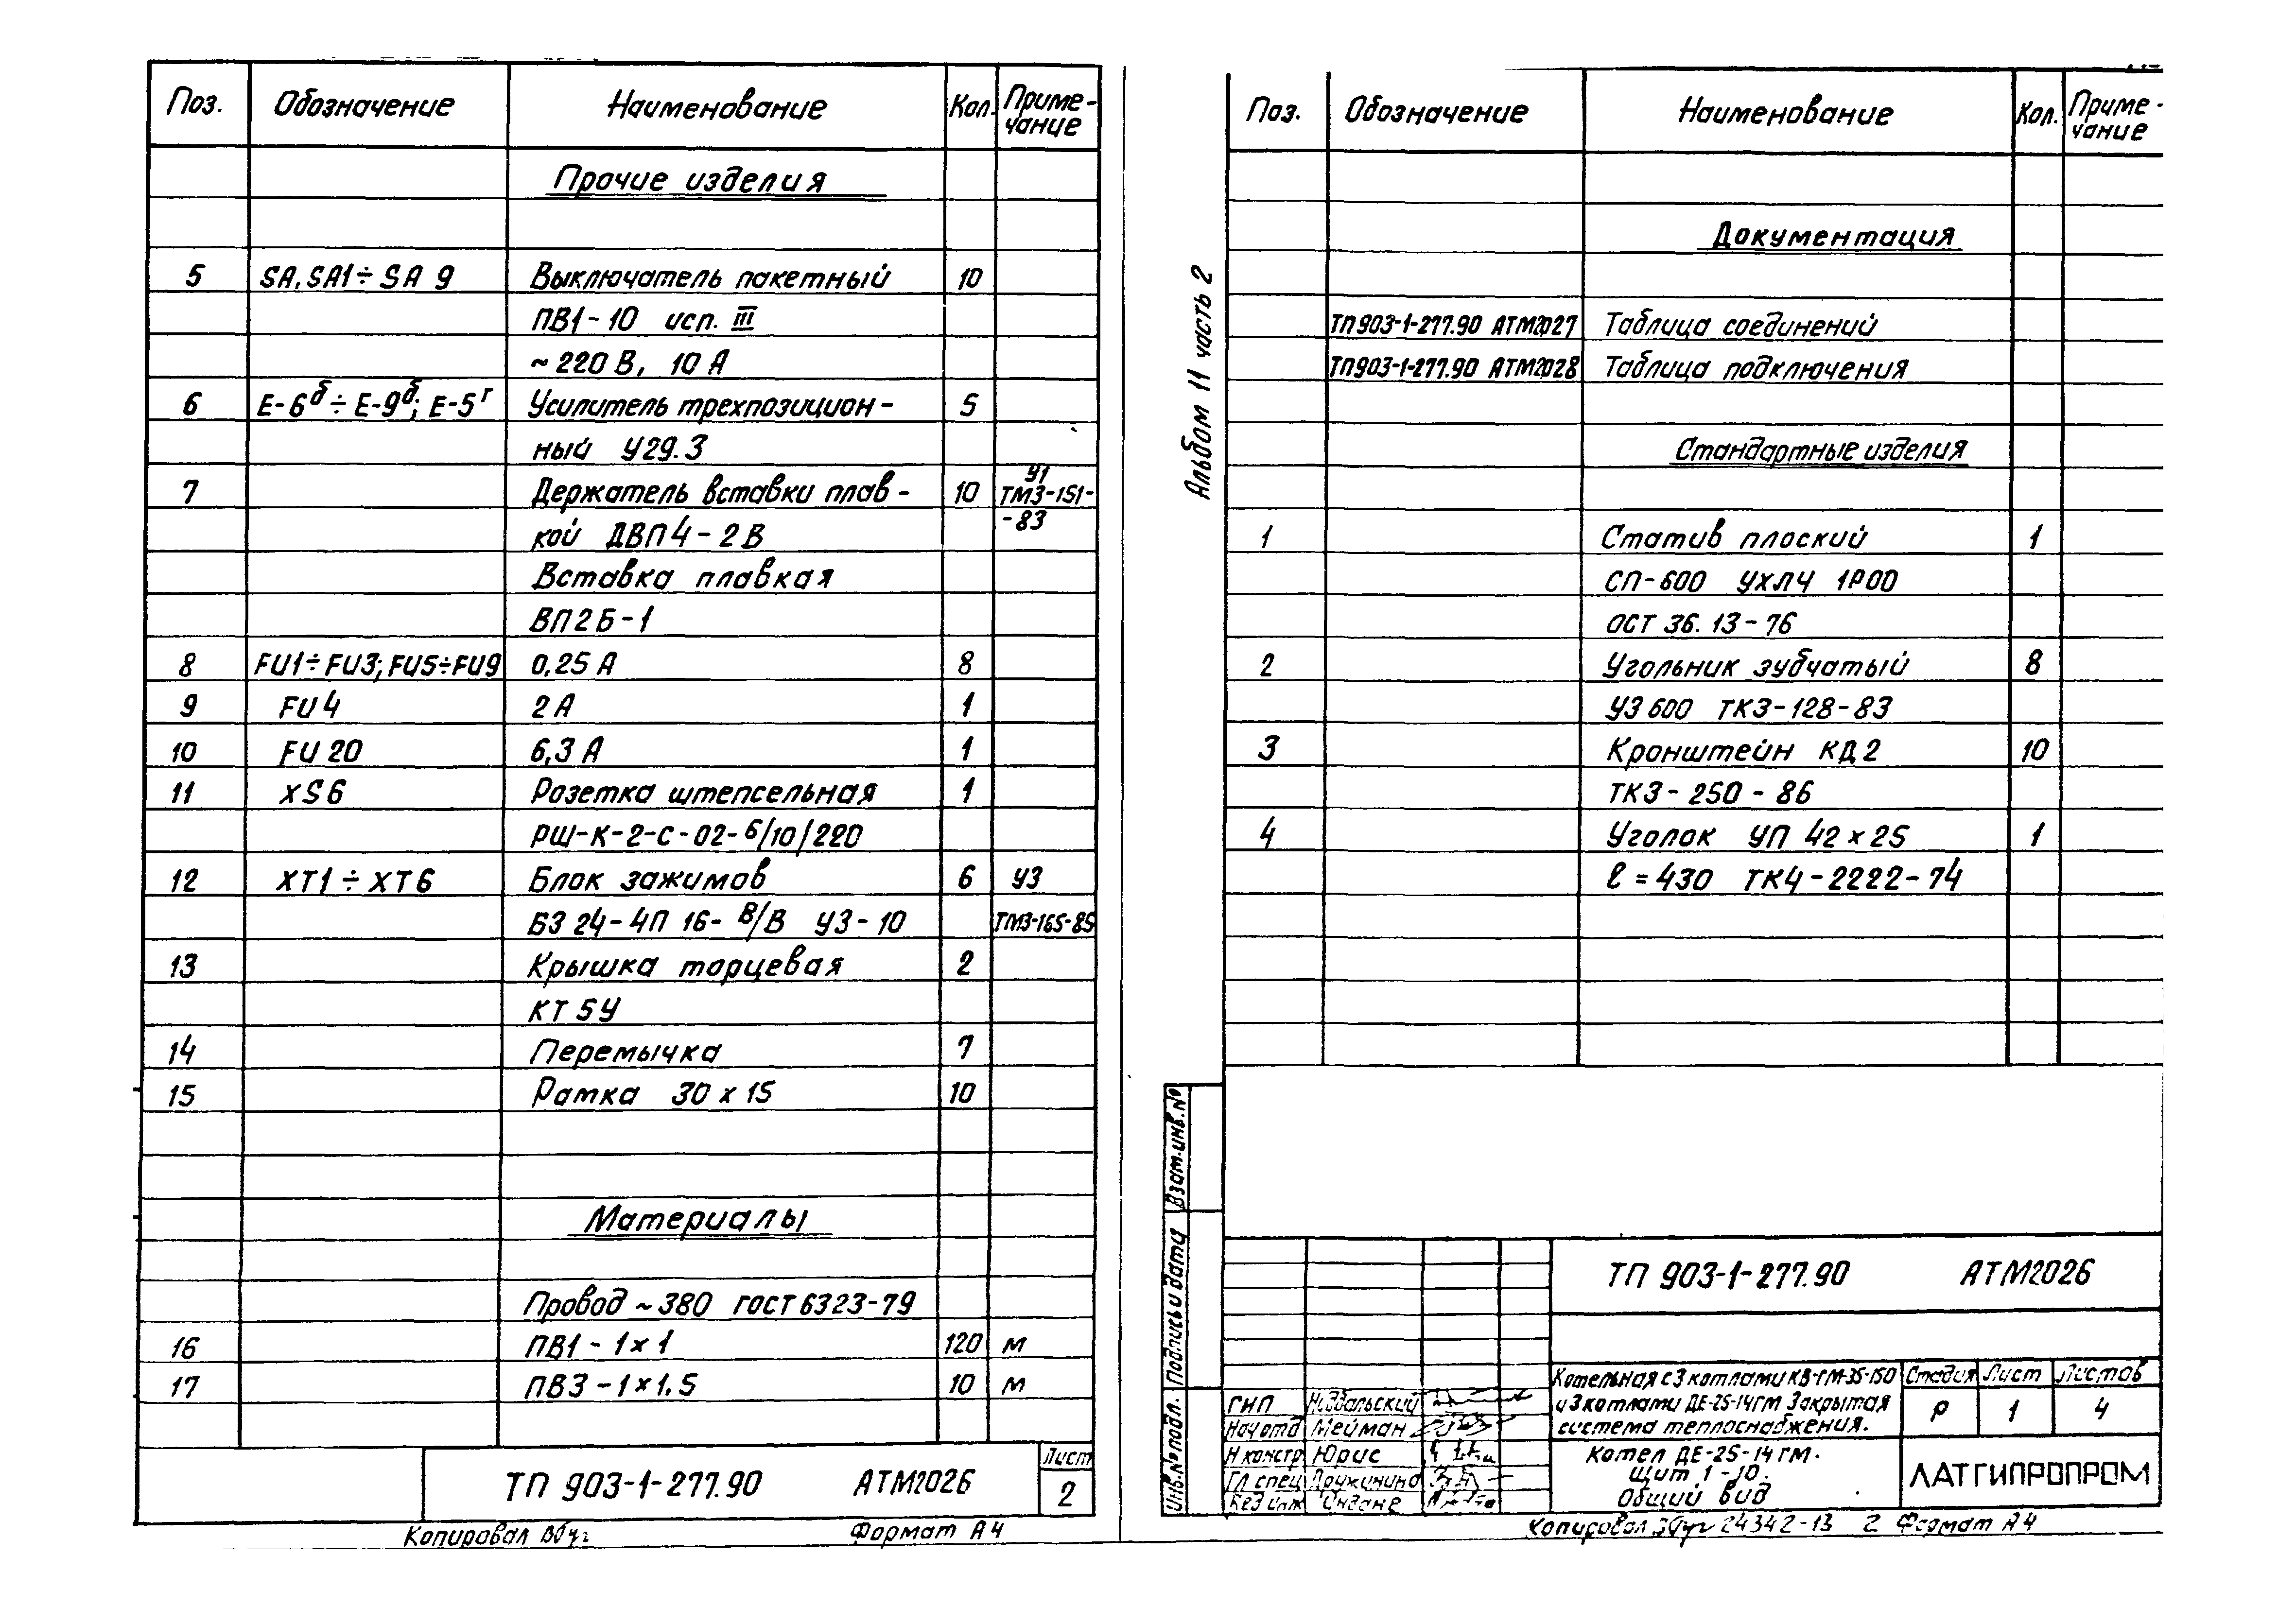 Поз. Обозначение Наименование Кол. Приме-
чание
Прочие изделия
5 SA, SA1÷SA 9 Выключатель пакетный 10
ПВ1-10 исп. III
~220 В, 10 А
6 Е-6б÷Е-9б; Е-5г Усилитель трехпозицион- 5
ный У29.3
7 Держатель вставки плав- 10 У1 ТМ3-151-
кой ДВП4-2В -83
Вставка плавкая
ВП2Б-1
8 FU1÷FU3; FU5÷FU9 0,25 А 8
9 FU4 2 А 1
10 FU20 6,3 А 1
11 XS6 Розетка штепсельная 1
РШ-К-2-С-02-6/10/220
12 XT1÷XT6 Блок зажимов 6 У3
БЗ 24-4П 16-В/В У3-10 ТМ3-165-85
13 Крышка торцевая 2
КТ 5У
14 Перемычка 7
15 Рамка 30х15 10
Материалы
Провод ~380 ГОСТ 6323-79
16 ПВ1-1х1 120 м
17 ПВ3-1х1.5 10 м
ТП 903-1-277.90 АТМ2026
Лист
2
Копировал
Формат А4
Альбом 11 часть 2
Поз. Обозначение Наименование Кол. Приме-
чание
Документация
ТП903-1-277.90 АТМ2027 Таблица соединений
ТП903-1-277.90 АТМ2028 Таблица подключения
Стандартные изделия
1 Статив плоский 1
СП-600 УХЛ4 1Р00
ОСТ 36.13-76
2 Угольник зубчатый 8
УЗ 600 ТК3-128-83
3 Кронштейн КД2 10
ТК3-250-86
4 Уголок УП 42х25 1
l=430 ТК4-2222-74
Взам.инв.№
Подпись и дата
Инв.№ подл.
ТП 903-1-277.90 АТМ2026
Котельная с 3 котлами КВ-ГМ-35-150
и 3 котлами ДЕ-25-14ГМ Закрытая
система теплоснабжения.
Стадия Лист Листов
Р 1 4
ГИП
Нач отд Мейман
Н констр Юрис
Гл спец Дружинина
Вед инж
Котел ДЕ-25-14 ГМ.
Щит 1-10.
Общий вид
ЛАТГИПРОПРОМ
Копировал 24342-13 2 Формат А4